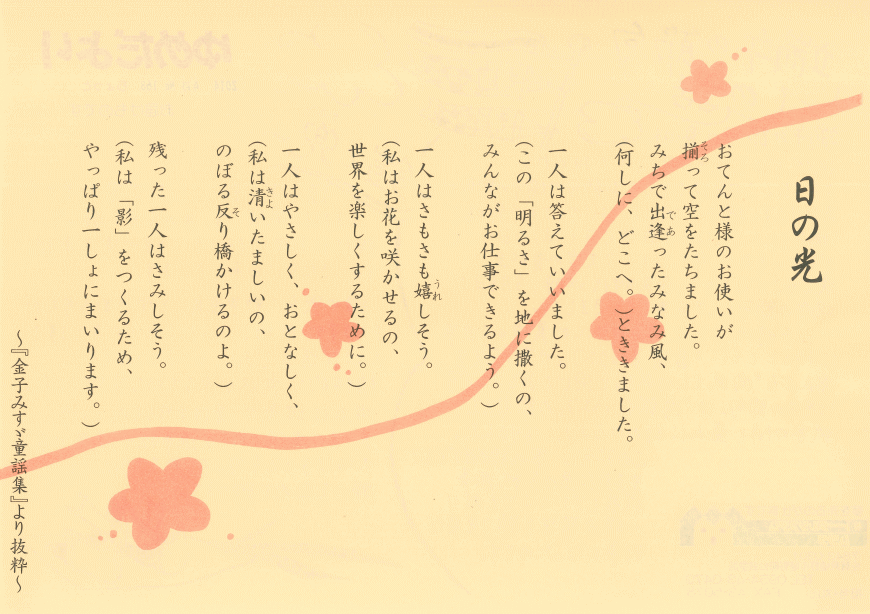 日の光
おてんと様のお使いが
揃って空をたちました。
みちで出逢ったみなみ風、
(何しに、どこへ。)とききました。
一人は答えていいました。
(この「明るさ」を地に撒くの、
みんながお仕事できるよう。)
一人はさもさも嬉しそう。
(私はお花を咲かせるの、
世界を楽しくするために。)
一人はやさしく、おとなしく、
(私は清いたましいの、
のぼる反り橋かけるのよ。)
残った一人はさみしそう。
(私は「影」をつくるため、
やっぱり一しょにまいります。)
~『金子みすゞ童謡集』より抜粋~